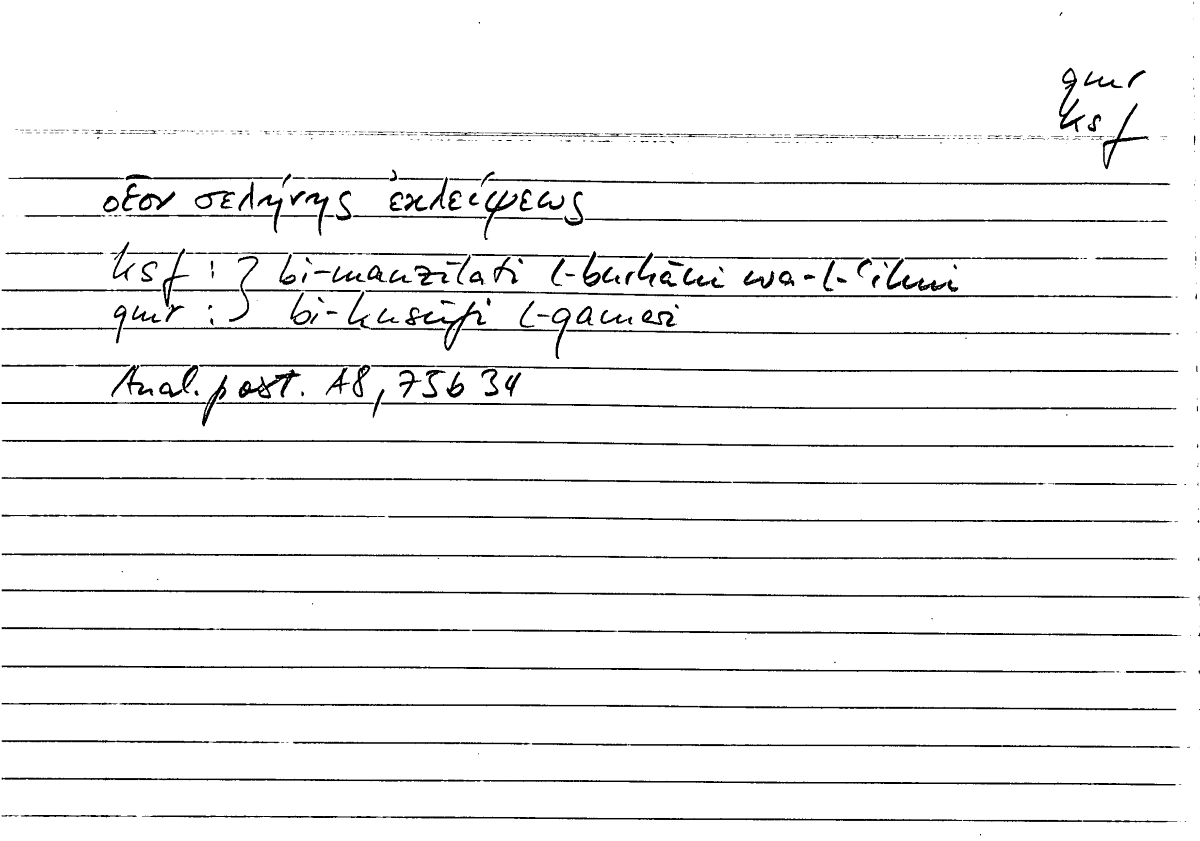 qmr
ksf
οἷον σελήνης ἐκλείψεως
ksf : } bi-manzilati l-burhāni wa-l-ʿilmi
qmr : } bi-kusūfi l-qamari
Anal. post. A8, 75b 34